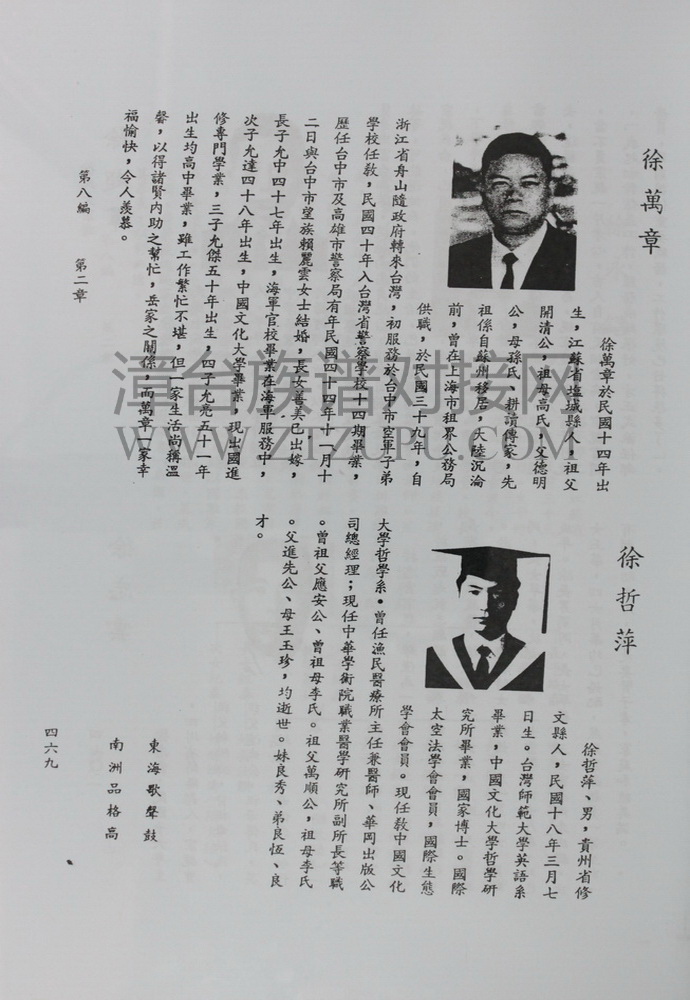 徐萬章
徐萬章於民國十四年出
生，江蘇省塩城縣人，祖父
開清公，祖母高氏，父德明
公，母孫氏、耕讀傳家，先
祖係自蘇州移居，大陸沉淪
前，曾在上海市租界公務局
供職，於民國三十九年，自
浙江省舟山隨政府轉來台灣，初服務於台中市空軍子弟
學校任教，民國四十年入台灣省警察學校十四期畢業，
歷任台中市及高雄市警察局有年民國四十四年十一月十
二日與台中市望族賴麗雲女士結婚，長女善美已出嫁，
長子允中四十七年出生，海軍官校畢業在海軍服務中，
次子允達四十八年出生，中國文化大學畢業，現出國進
修專門學業，三子允傑五十年出生，四子允亮五十一年
出生均高中畢業，雖工作繁忙不堪，但一家生活尚稱溫
馨，以得諸賢内助之幫忙，岳家之關係，而萬章一家幸
福愉快，令人羨慕。
第八編　第二章
徐哲萍
徐哲萍、男，貴州省修
文縣人，民國十八年三月七
日生。台灣師範大學英語系
畢業，中國文化大學哲學研
究所畢業，國家博士。國際
太空法學會會員，國際生態
學會會員。現任教中國文化
大學哲學系・曾任漁民醫療所主任兼醫師、華岡出版公
司總經理；現任中華學術院職業醫學研究所副所長等職
。曾祖父應安公、曾祖母李氏。祖父萬順公，祖母李氏
。父進先公、母王玉珍，均逝世。妹良秀、弟良恆、良
才。
東海歌聲鼓
南洲品格高
四六九
漳台族谱对接网
WWW.ZTZUPU.COM